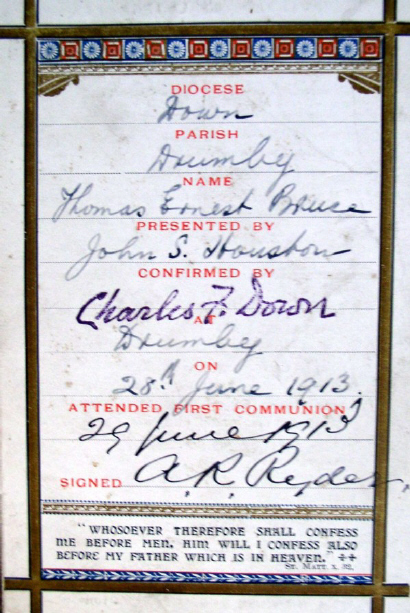 DIOCESE
Down
PARISH
Drumbeg
NAME
Thomas Ernest Bruce
PRESENTED BY
John S. Houston
CONFIRMED BY
Charles F. Down
AT
Drumbeg
ON
28th June 1913.
ATTENDED FIRST COMMUNION
29 June 1913
SIGNED A. R. Ryder.
"WHOSOEVER THEREFORE SHALL CONFESS
ME BEFORE MEN, HIM WILL I CONFESS ALSO
BEFORE MY FATHER WHICH IS IN HEAVEN."
ST. MATT. X. 32.